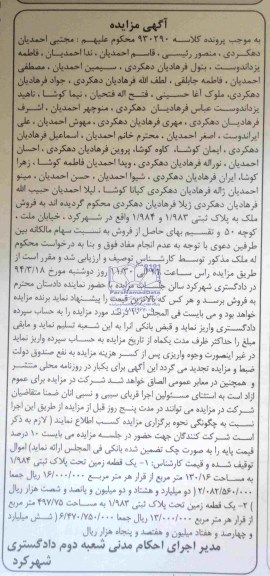 آگهی مزایده
به موجب پرونده کلاسه ۹۳۰۲۹۰ محکوم علیهم : مجتبی احمدیان
دهکردی ، منصور رئیسی ، قاسم احمدیان ، ندا احمدیان ، فاطمه
یزداندوست ، بتول فرهادیان دهکردی ، سیمین احمدیان ، مصطفی
احمدیان ، فاطمه جابلقی ، لطف الله فرهادیان دهکردی ، جواد فرهادیان
دهکردی، ملوک آغا حسینی ، فتح اله فتحیان ، نیما کوشا ، ناهید
یزداندوست عباس فرهادیان دهکردی ، منوچهر احمدیان ، اشرف
فرهادیان دهکردی ، مهری فرهادیان دهکردی ، مهوش احمدیان ، علی
ایراندوست ، اصغر احمدیان ، محترم خانم احمدیان ، اسماعیل فرهادیان
دهکردی ، ایمان کوشا، کاوه کوشا، پروین فرهادیان دهکردی ، احسان
احمدیان ، نوراله فرهادیان دهکردی ، ویدا احمدیان فاطمه کوشا ، زهرا
کوشا، ایران فرهادیان دهکردی ، شیوا احمدیان ، حسن احمدیان ، مینو
احمدیان ژاله فرهادیان دهکردی کیانا کوشا ، لیلا احمدیان حبیب الله
فرهادیان دهکردی ژیلا فرهادیان دهکردی محکوم گردیده اند به فروش
ملک به پلاک ثبتی ۱/۹۸۳ و ۱/۹۸۴ واقع در شهرکرد ، خیابان ملت ،
کوچه ۵۰ و تقسیم بهای حاصل از فروش به نسبت سهام مالکانه بین
طرفین دعوی با توجه به عدم انجام مفاد فوق و بنا به درخواست محکوم
له ملک مذکور توسط کارشناس توصیف و ارزیابی شد و مقرر است از
طریق مزایده راس ساعت ۱۱/۳۰ روز دوشنبه مورخ ۹۴/۳/۱۸
در دادگستری شهرکرد سالن جلسات مزایده با حضور نماینده دادستان محترم
به فروش برسد و هر کس که بالاترین قیمت را پیشنهاد نماید برنده مزایده
خواهد بود و می بایست فی المجلس درصد مورد مزایده را به حساب سپرده
دادگستری واریز نماید و قبض بانکی آنرا به این شعبه تسلیم نماید و مابقی
مبلغ را حداکثر ظرف مدت یکماه از تاریخ مزایده به حساب سپرده واریز نماید
در غیر اینصورت وجه واریزی پس از کسر هزینه مزایده به نفع صندوق دولت
ضبط و مزایده تجدید می گردد این آگهی برای یکبار در روزنامه محلی منتشر
و همچنین در معابر عمومی الصاق خواهد شد شرکت در مزایده برای عموم
آزاد است به استثنای مسئولین اجرا قربای سببی و نسبی آنان ضمنا متقاضیان
شرکت در مزایده می توانند در مدت پنج روز قبل از مزایده از طریق این اجرا
نسبت به چگونگی نحوه برگزاری مزایده کسب اطلاع نمایند ( لازم به ذکر
است شرکت کنندگان جهت حضور در جلسه مزایده می بایست ۱۰ درصد
قیمت پایه را به صورت چک تضمین شده بانکی فی المجلس ارائه نماید) اموال
توقیف شده و قیمت کارشناس: ۱- یک قطعه زمین تحت پلاک ثبتی ۱/۹۸۴
به مساحت ۱۳۰/۱۶ متر مربع از قرار هر متر مربع ۱۶/۰۰۰/۰۰۰ ریال جمعا
۲/۰۸۲/۵۶۰/۰۰۰ ( دو میلیارد و هشتاد و دو میلیون و پانصد و شصت هزار ریال
) ۲- یک قطعه زمین تحت پلاک ثبتی ۱/۹۸۳ به مساحت ۴۹۷/۷۵ متر مربع
از قرار هر متر مربع ۱۳/۰۰۰/۰۰۰ ریال جمعا ۶/۴۷۰/۷۵۰/۰۰۰ ( شش میلیارد
و چهارصد و هفتاد میلیون و هفتصد و پنجاه هزار ریال
مدیر اجرای احکام مدنی شعبه دوم دادگستری
شهرکرد